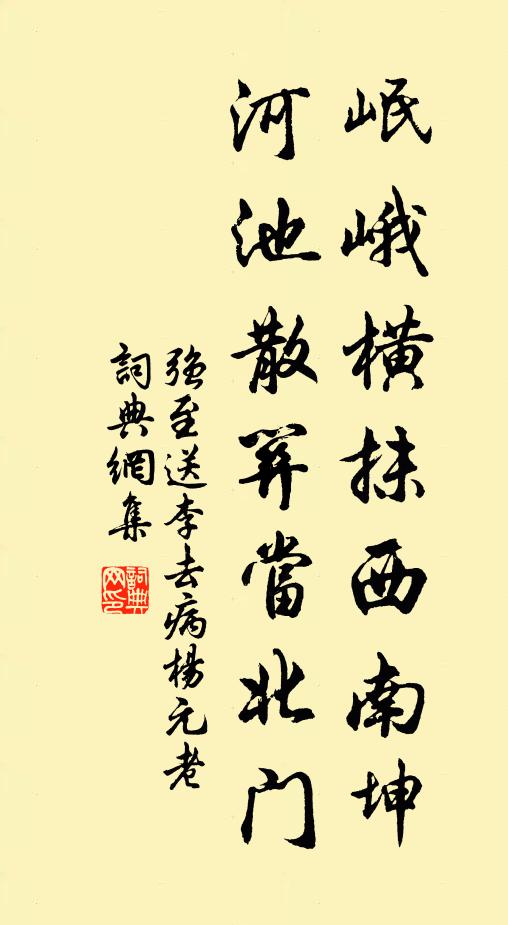 岷峨橫抹西南坤
河池散關當北門
强至送李去病楊元老
詞典網集
詞典
网印